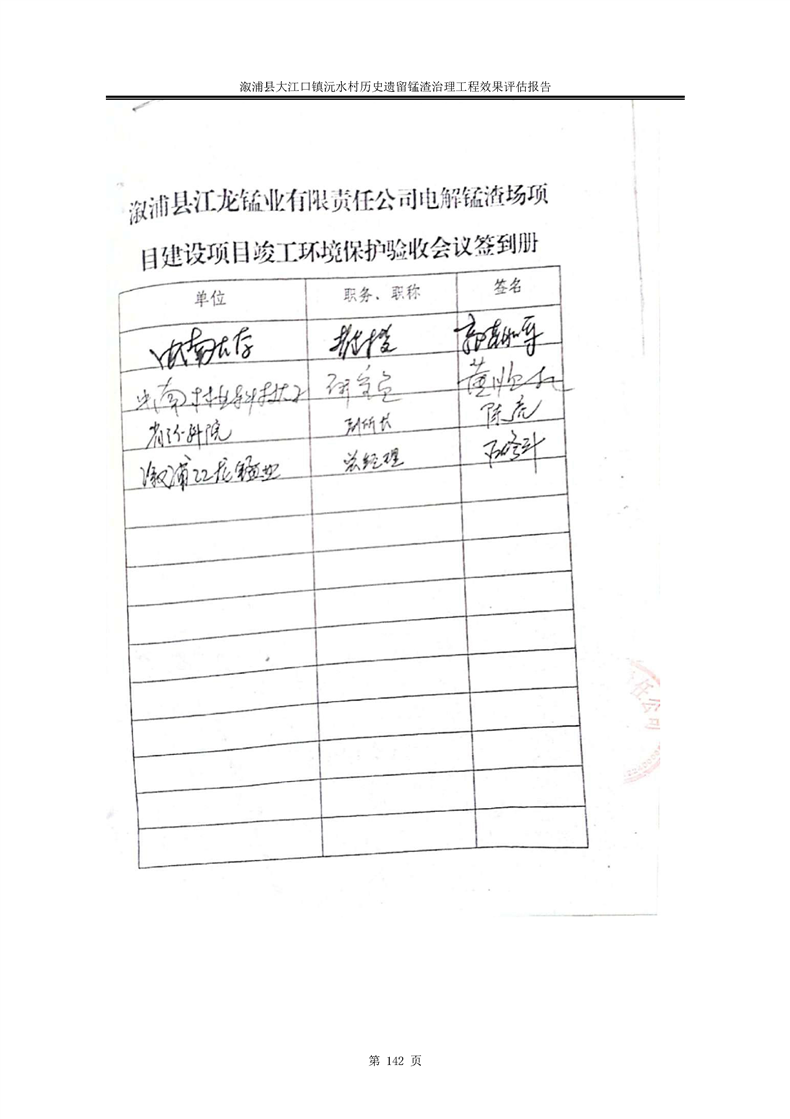 溆浦县大江口镇沅水村历史遗留锰渣治理工程效果评估报告
溆浦县江龙锰业有限责任公司电解锰渣场项
目建设项目竣工环境保护验收会议签到册
单位 职务、职称 签名
湖南大学 教授
研究员
省环科院 副所长 陈亮
溆浦江龙锰业 总经理
任公司
第 142 页